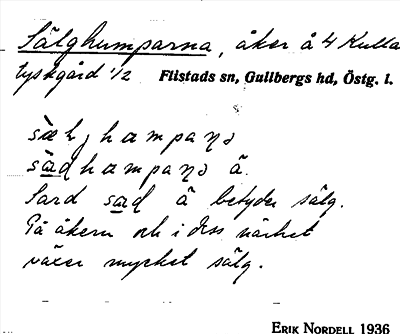 Sälghumparna, åker å 4 Kulla
tyskgård 1/2 Flistads sn, Gullbergs hd, Östg. l.
hampanə
sạdhampanə ä.
Sard sạd ä betyder sälg.
På åkern och i dess närhet
växer mycket sälg.
ERIK NORDELL 1936